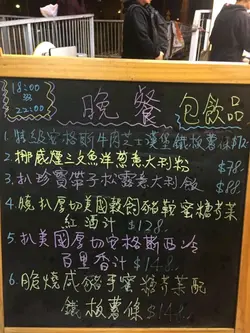 18:00
至
22:00
晚餐
包飲品
1. 特級安格斯牛肉芝士漢堡鐵板薯條
2. 挪威煙三文魚洋葱意大利粉 $78.
3. 扒珍寶帶子松露意大利飯 $88
4. 脆扒厚切美國穀飼豬鞍蜜糖考菜
紅酒汁 $128.
5. 扒美國厚切安格斯西冷
百里香汁 $148.
6. 脆燒咸豬手蜜糖考菜配
鐵板薯條 $148.